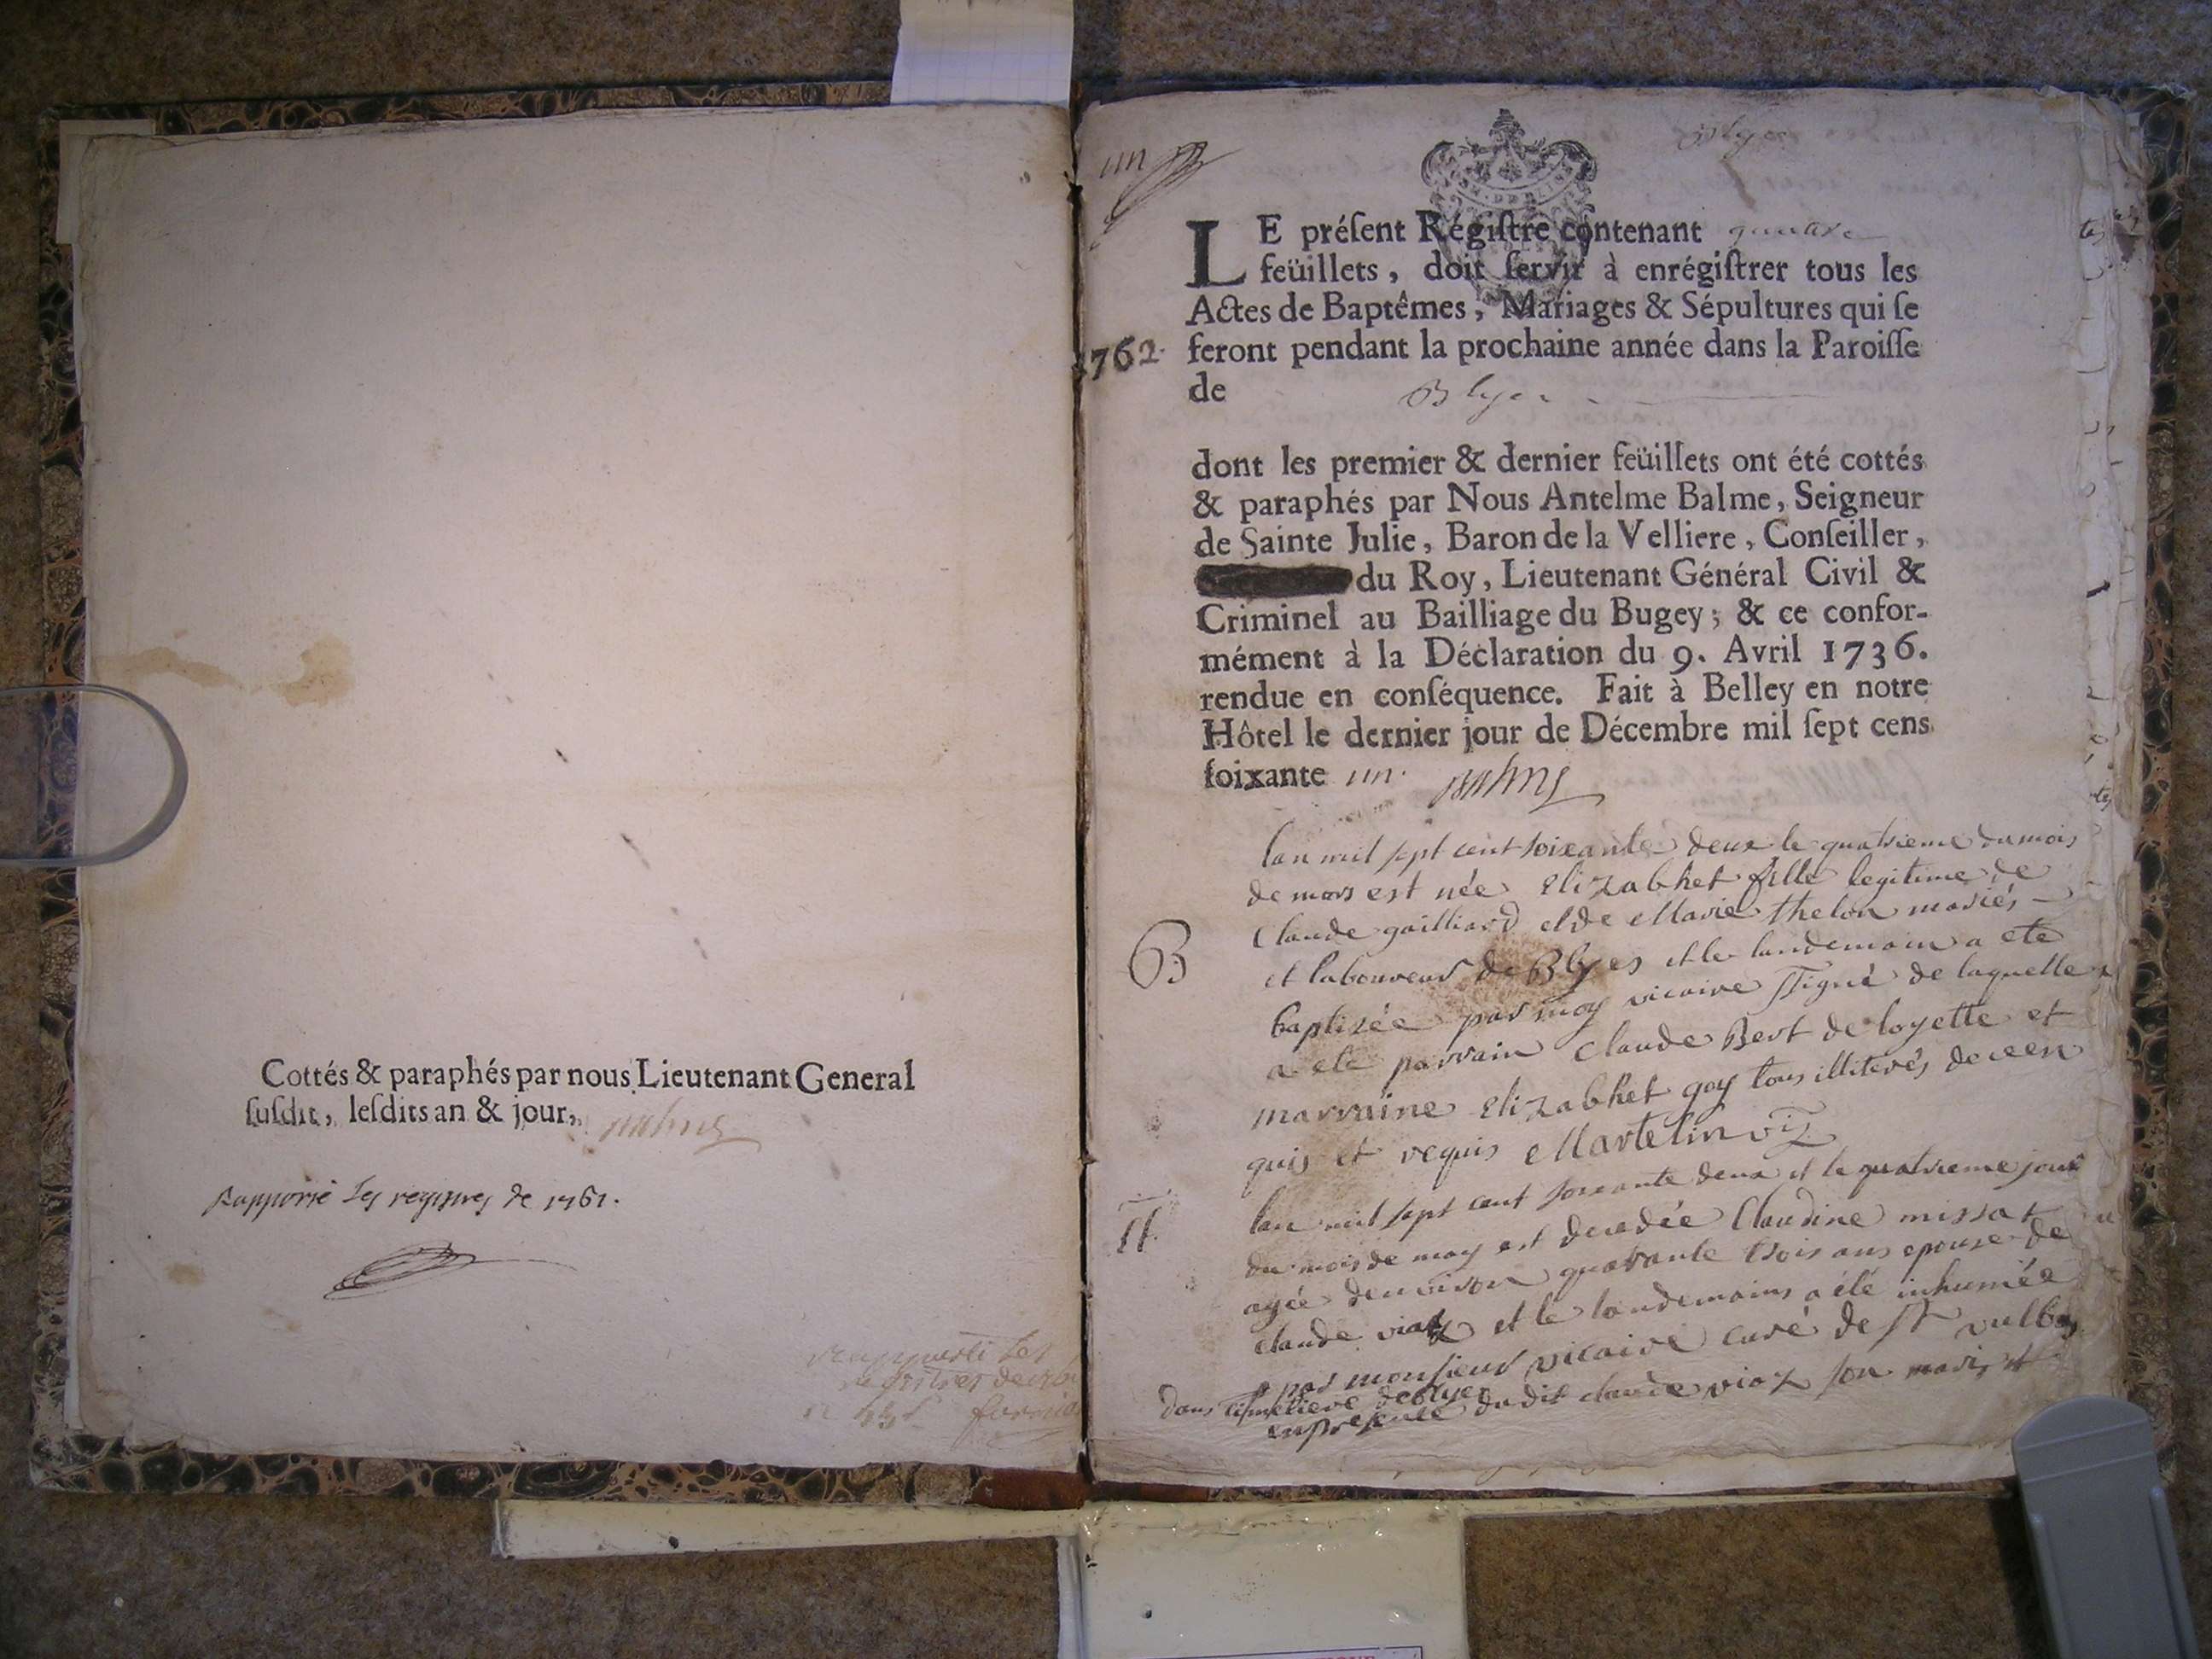 Cottés & paraphés par nous Lieutenant General
ſuſdit, leſdits an & jour,
Rapporté les regiſtres de 1761.
un
Blyes
LE préſent Régiſtre contenant quatre
feüillets, doit ſervir à enrégiſtrer tous les
Actes de Baptêmes, Mariages & Sépultures qui ſe
1762 feront pendant la prochaine année dans la Paroiſſe
de Blyes
dont les premier & dernier feüillets ont été cottés
& paraphés par Nous Antelme Balme, Seigneur
de Sainte Julie, Baron de la Velliere, Conſeiller,
du Roy, Lieutenant Général Civil &
Criminel au Bailliage du Bugey; & ce confor-
mément à la Déclaration du 9. Avril 1736.
rendue en conſéquence. Fait à Belley en notre
Hôtel le dernier jour de Décembre mil ſept cens
ſoixante un. Balme
lan mil sept cent soixante deux le quatrieme du mois
de mars est née Elizabhet fille legitime de
Claude gailliard et de Marie thelon mariés
B
et laboureur de Blyes et le landemain a eté
baptizée par moy vicaire ssigné de laquelle
a eté parrain Claude Bert de loyette et
marraine Elizabhet goy tous illiterés de ce en
quis et requis Martelin
lan mil sept cent soixante deux et le quatrieme jour
du mois de may est decedée Claudine missat
agée denviron quarante trois ans epouse de
claude viax et le landemains a été inhumée
par monsieur vicaire curé de st vulbas
dans cimetiere de Blyes
en presence du dit claude viax son maris et